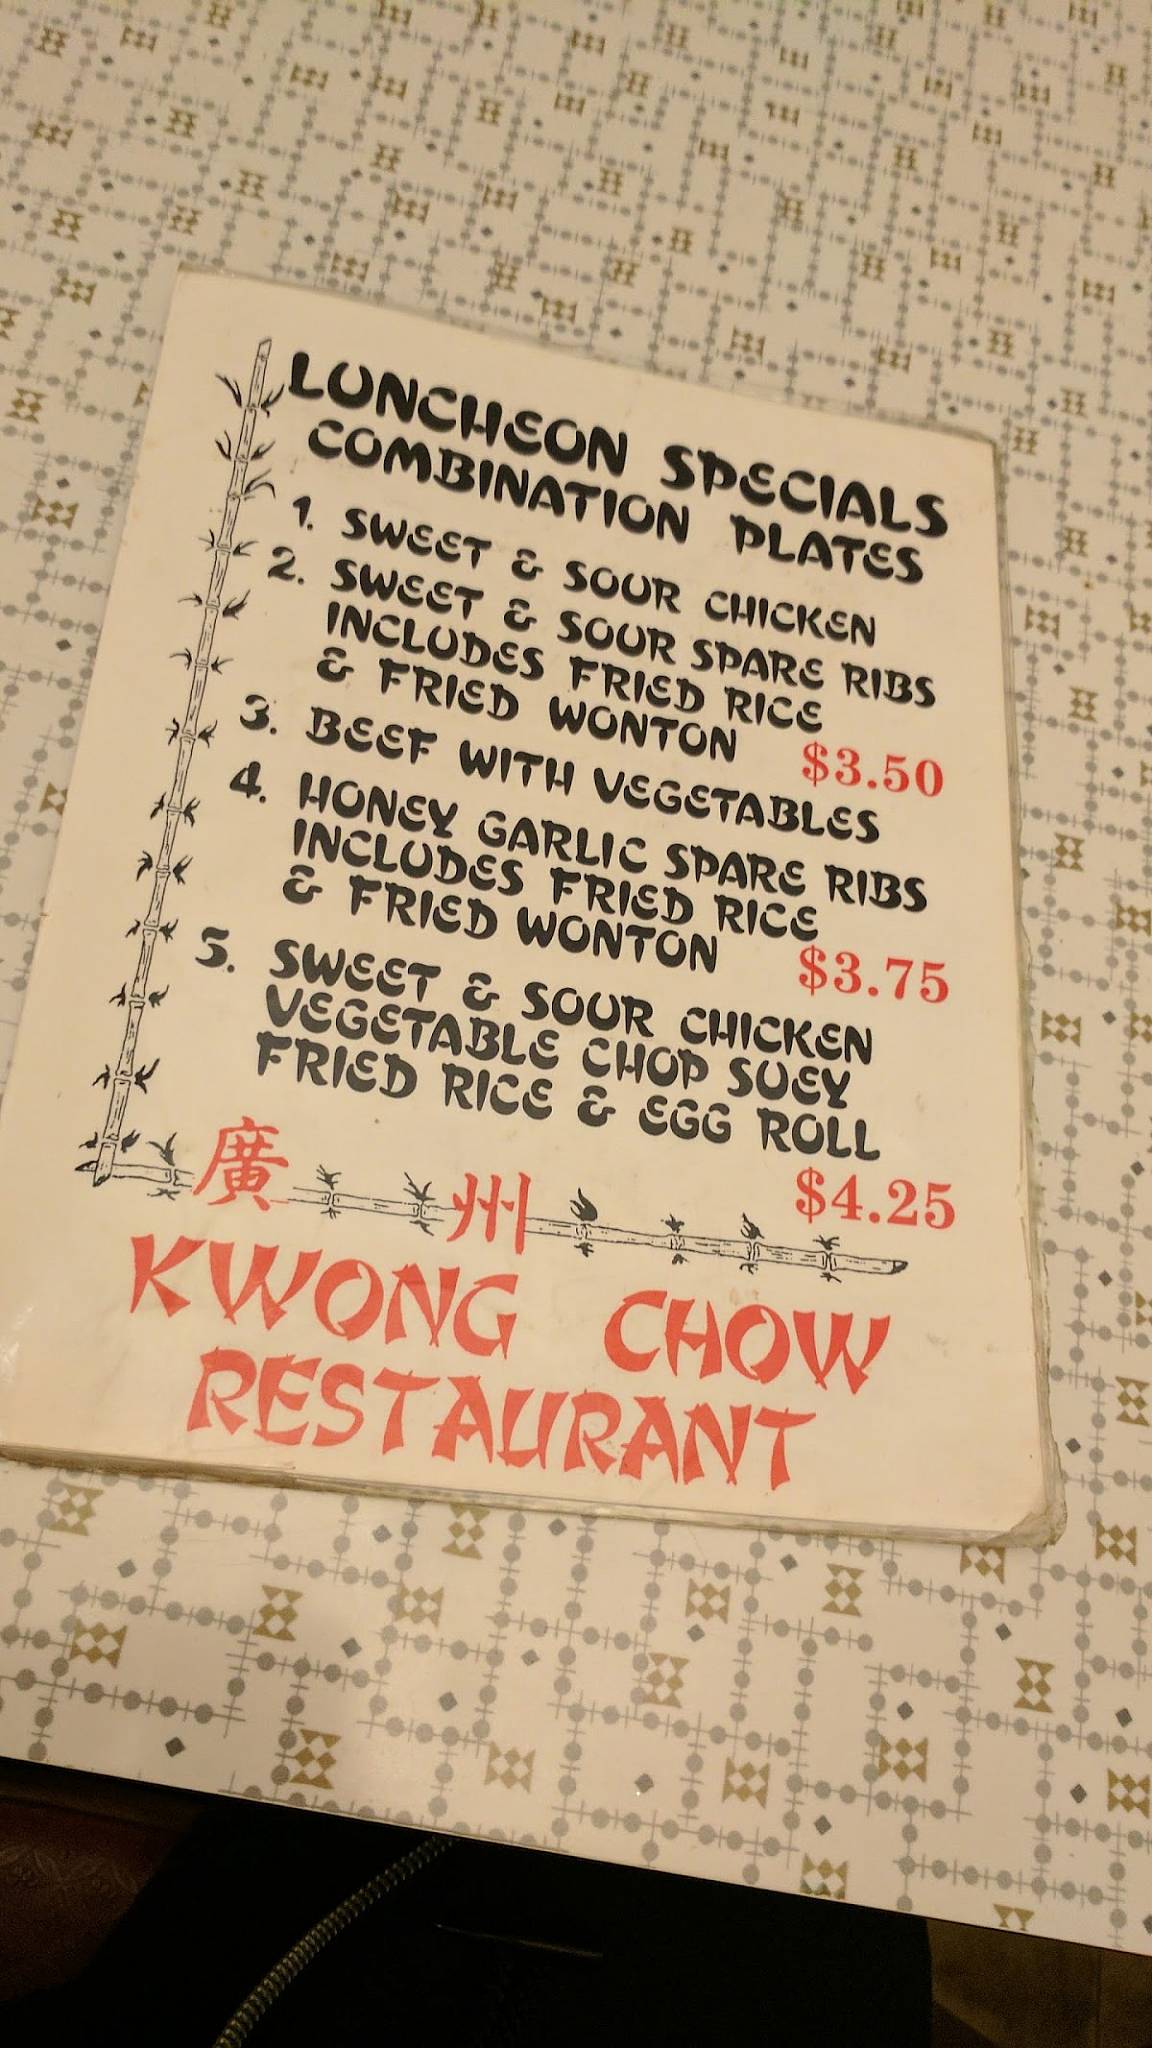 LUNCHEON SPECIALS
COMBINATION PLATES
1. SWEET & SOUR CHICKEN
2. SWEET & SOUR SPARE RIBS
INCLUDES FRIED RICE
& FRIED WONTON $3.50
3. BEEF WITH VEGETABLES
4. HONEY GARLIC SPARE RIBS
INCLUDES FRIED RICE
& FRIED WONTON $3.75
5. SWEET & SOUR CHICKEN
VEGETABLE CHOP SUEY
FRIED RICE & EGG ROLL
$4.25
廣州
KWONG CHOW
RESTAURANT